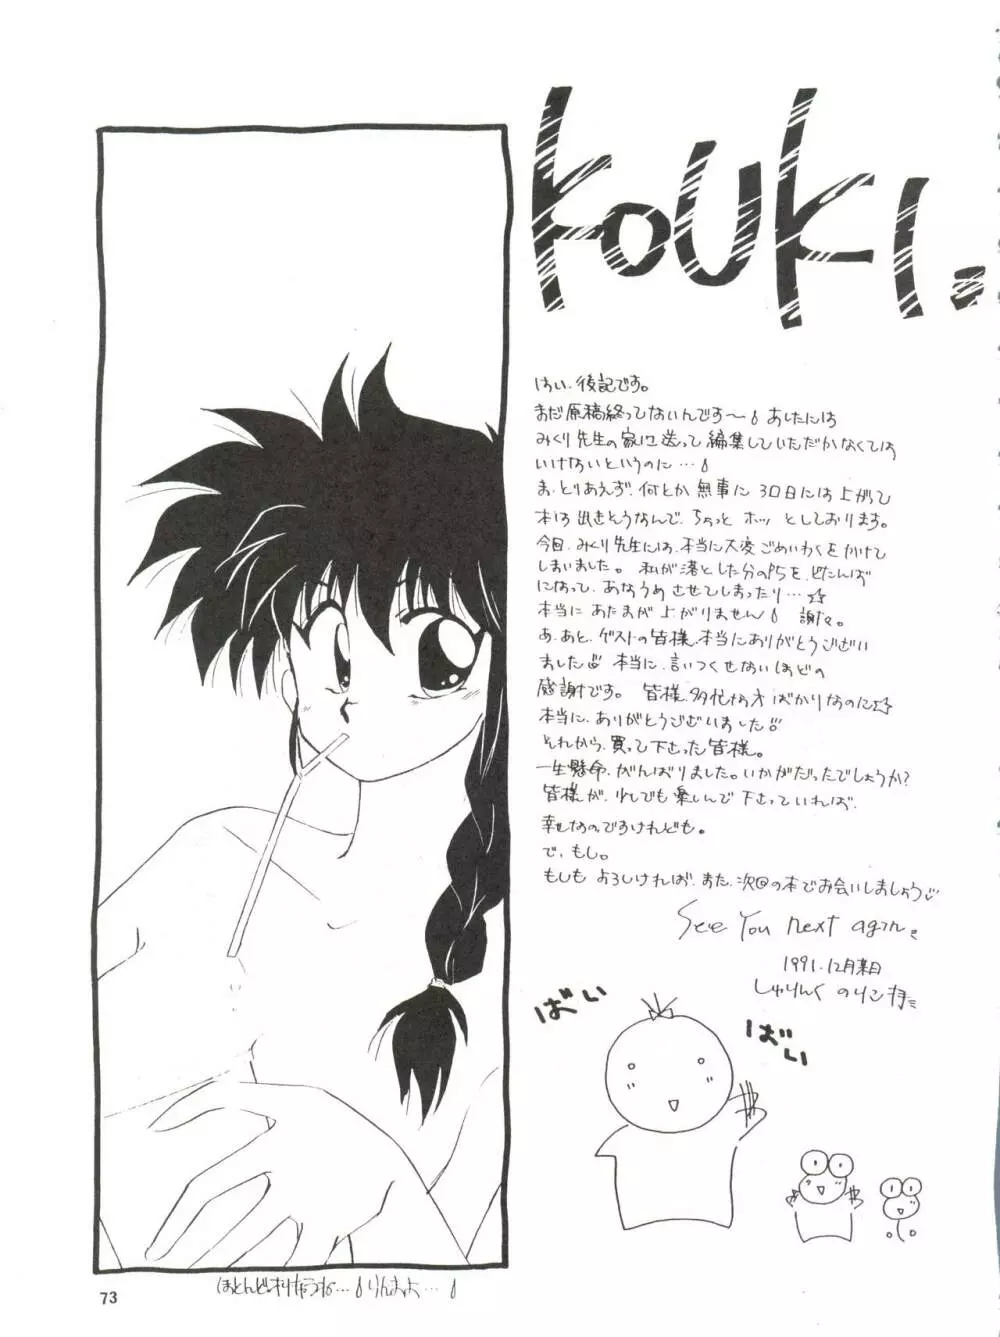 KOUKI.
はい、後記です。
まだ原稿終ってないんです〜 あしたには
みくり先生の家に送って編集していただかなくては
いけないというのに…
ま、とりあえず、何とか無事に30日には上がって
本は出そうなんで、ちょっと ホッ としております。
今回、みくり先生には、本当に大変ごめいわくをかけて
しまいました。 私が落とした分のP5を、どたんば
になって、あなうめさせてしまったり…☆
本当にあたまが上がりません 謝々。
あ、あと、ゲストの皆様、本当にありがとうござい
ました 本当に、言いつくせないほどの
感謝です。 皆様、多忙な方ばかりなのに☆
本当に、ありがとうございました
それから、買って下さった皆様。
一生懸命、がんばりました。いかがだったでしょうか?
皆様が、少しでも楽しんで下さっていれば、
幸せなのですけれども。
で、もし。
もしも よろしければ、また、次回の本でお会いしましょう♡
See You next again
1991.12月某日
しゅりんく のりこ拝
ばい
ばい
ほとんどオリキャラね…
73